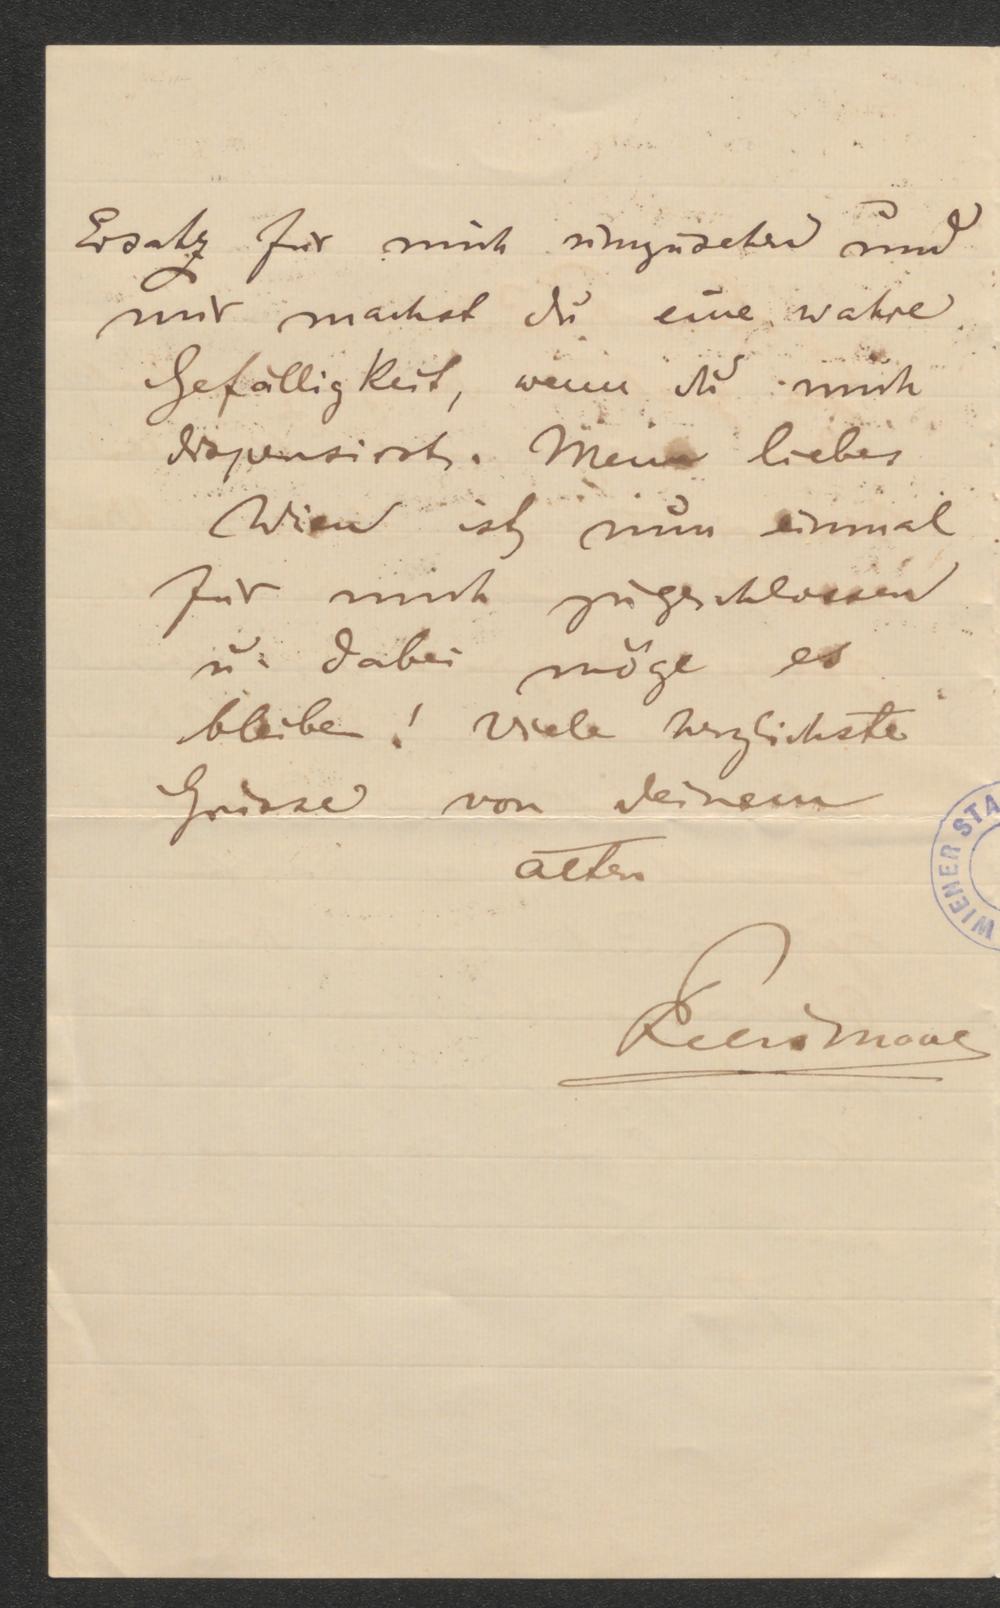 Ersatz für mich umzusehen und
mir machst du eine wahre
Gefälligkeit, wenn du mich
dispensirst. Mein liebes
Wien ist nun einmal
für mich zugeschlossen
u. dabei möge es
bleiben! Viele herzlichste
Grüsse von deinem
alten
WIENER STA